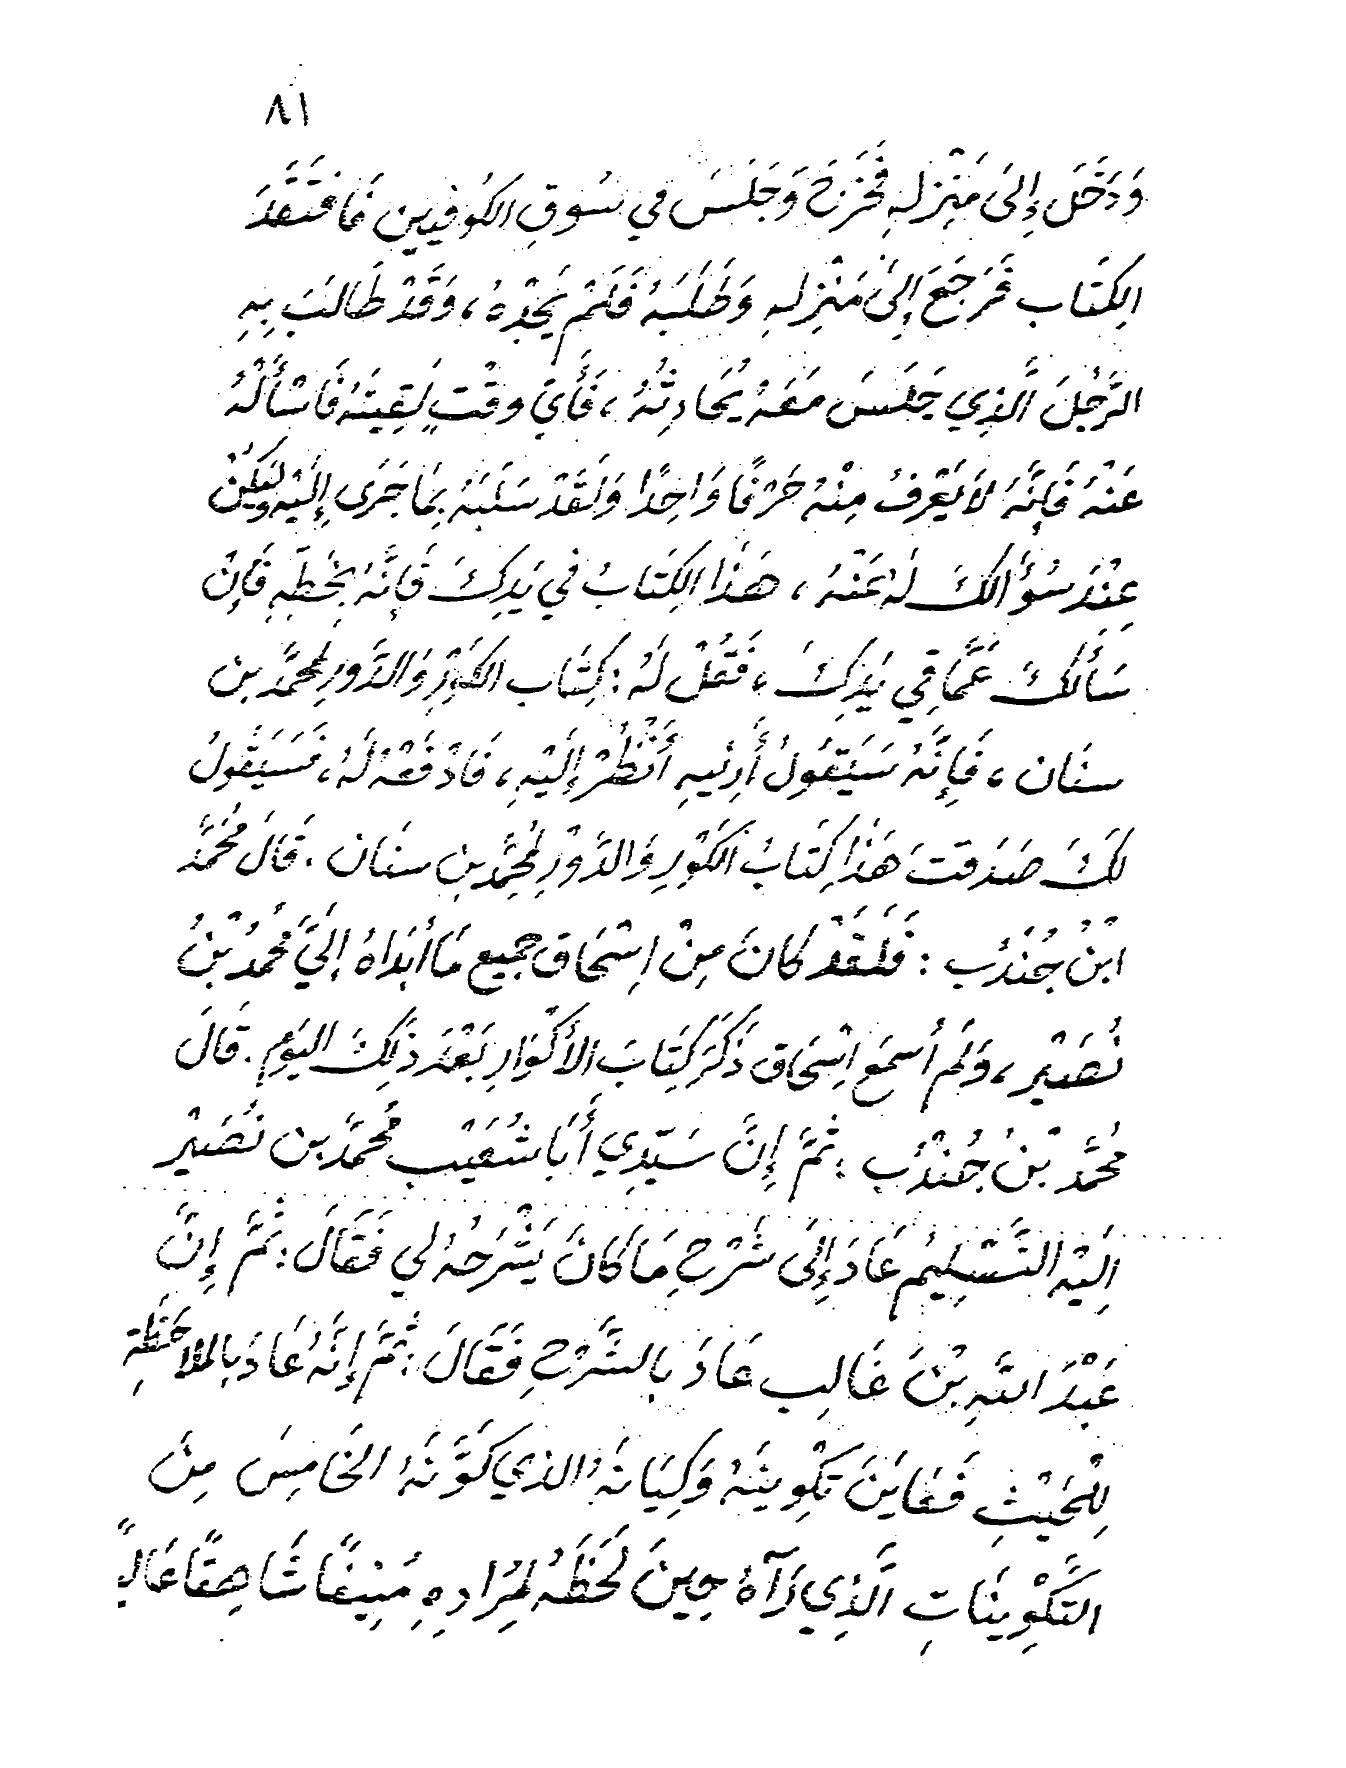 ٨١
وَدَخَلَ إِلىَ مَنْزِلِهِ فَخَرَجَ وَجَلَسَ في سُوقِ الكُوفيين فَافتَقَدَ
الِكتَاب فَرَجَعَ إِلىَ مَنْزِلِهِ وَطَلَبَهُ فَلَمْ يَجِدْهُ، وَقَدْ طَالَبَ بِهِ
الرَّجُلَ الَّذِي جَلَسَ مَعَهُ يُحَادِثُهُ، فَأَيَ وقْتٍ لَقِيتَهُ فَاسْأَلْهُ
عَنْهُ فَإِنَّهُ لاَيَعْرِفُ مِنْهُ حَرْفًا وَاحِدًا وَلَقَدْ سَلَبَهُ بِمَا جَرَى إِلَيْهِ وَلَيَكُنْ
عِنْدَ سُؤَالكَ لَهُ عَنْهُ، هَذَا الِكتَابُ في يَدِكَ فَإِنَّهُ بِخَطِّهِ فَإِنْ
سَأَلَكَ عَمَّا فِي يَدِكَ، فَقُلْ لَهُ: كِتَاب الكَوْرِ وَالدَّورِ لمحمَّد بن
سنَان، فَإِنَّهُ سَيَقُولُ أَرِنْيهِ أَنْظُرْ إِلَيْهِ، فَادْفَعْهُ لَهُ، فَسَيَقُولُ
لَكَ صَدَقتَ هَذَا كِتَابُ الكَوْرِ وَالدَّوْرِ لمحَمَّد بنِ سنَان. قَالَ مُحَمَّدُ
ابْنُ جُنْدُب: فَلَقَدْ كَانَ مِنْ اِسْحَاق جميع مَا أبدَاهُ إلَيَّ مُحَمَّدُ بْنُ
نُصَيْر، وَلَم أسمَع اِسْحَاق ذَكَرَ كِتَابَ الأكْوَارِ بَعْدَ ذَلِكَ اليَوْم. قَالَ
مُحَمَّد بْنُ جُنْدُب: ثُمَّ إِنَّ سَيِّدِي أَبَا شُعَيْب مُحمَّد بن نُصَيْر
اِلَيْهِ التَّسْلِيمُ عَادَ إِلىَ شَرْحِ مَا كَانَ يَشْرَحُهُ لي فَقَالَ: ثُمَّ إِنَّ
عَبْدَ اللهِ بْنَ غَالِب عَادَ بِالشَّرْحِ فَقَالَ: ثُمَّ إِنَّهُ عَادَ بِالملاحَظَةِ
لِلْحَيْثِ فَعَايَنَ تكْوِينَهُ وَكِيَانَهُ الذي كَوَّنَهُ الخَامِسَ مِنَ
التَّكْوِينَاتِ الَّذِي رَآهُ حِينَ لَحَظَهُ لِمُرَادِهِ مُنِيفًا شَاهِقًا عَاليًا